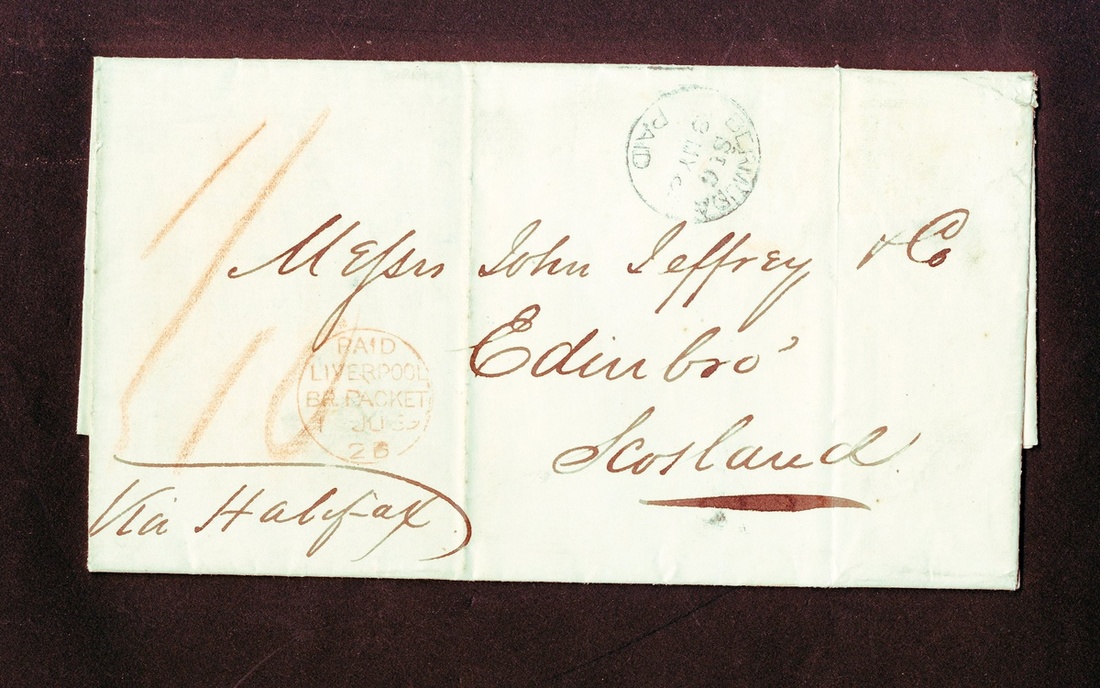 BERMUDA
St. G
8 MY
PAID
Messrs John Jeffrey & Co
Edinbro'
Scosland
1/10
PAID
LIVERPOOL
BR. PACKET
JU
26
Via Halifax